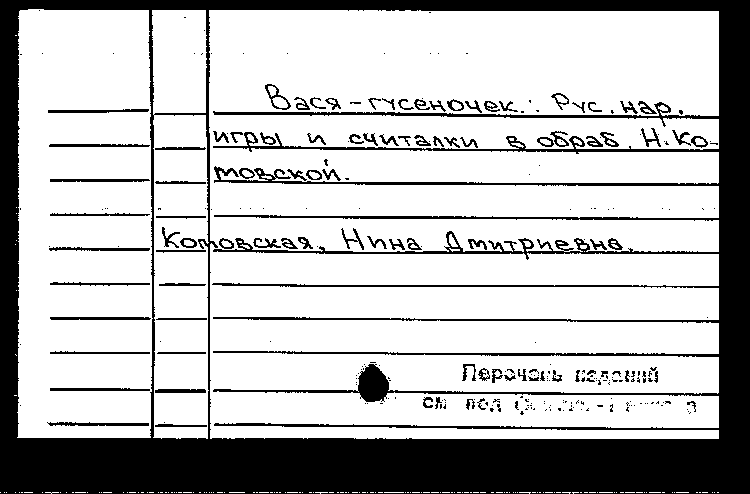 Вася-гусеночек.: Рус. нар.
игры и считалки в обраб. Н. Ко-
товской.
Котовская, Нина Дмитриевна.
Перечень изданий
см под